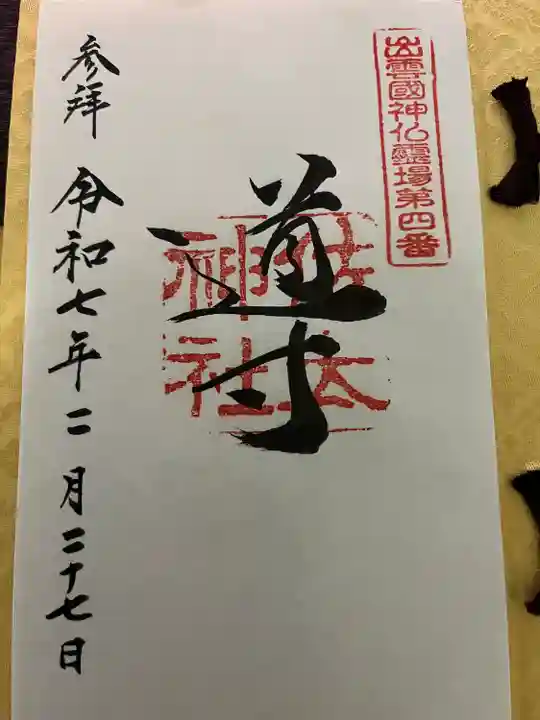 出雲國神仏靈場第四番
導
佐太
神社
参拜 令和七年二月二十七日